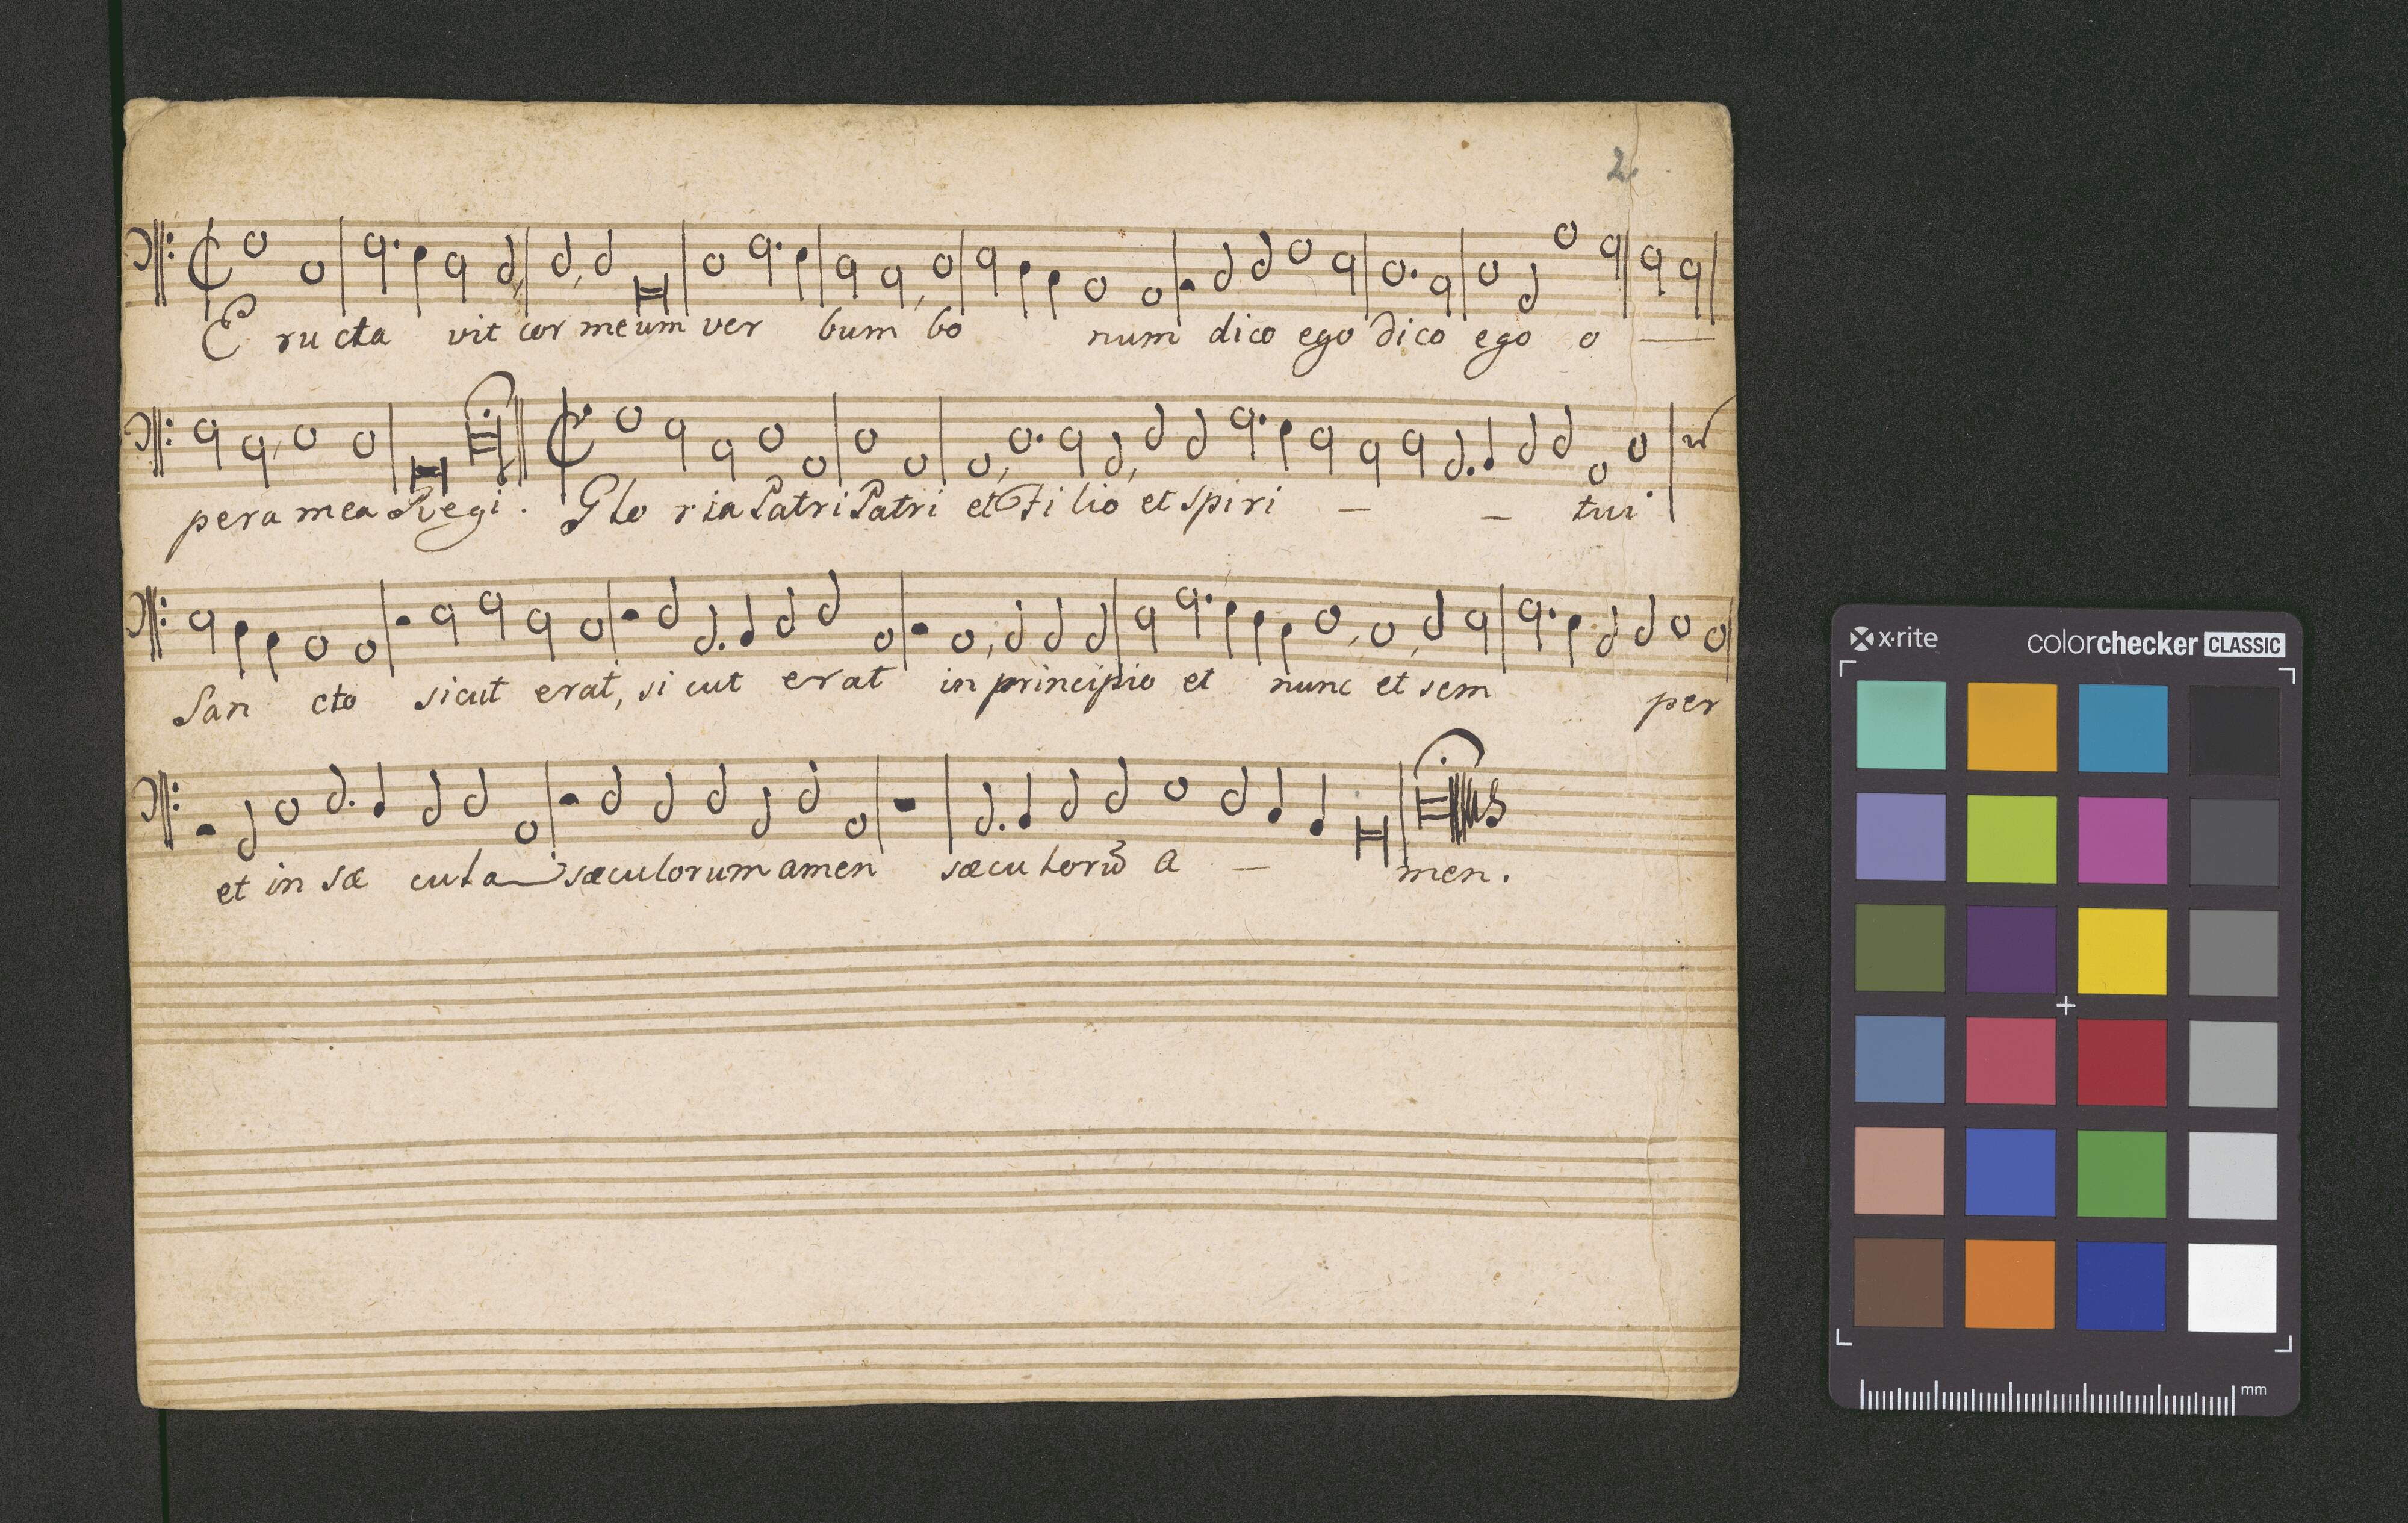 2
E ru cta vit cor meum ver bum bo num dico ego dico ego o —
pera mea Regi. Glo ria Patri Patri et Fi lio et Spiri — — tui
San cto sicut erat, si cut erat in principio et nunc et sem per
et in sæ cula sæculorum amen sæcu lorū a — men.
x·rite
colorchecker CLASSIC
mm